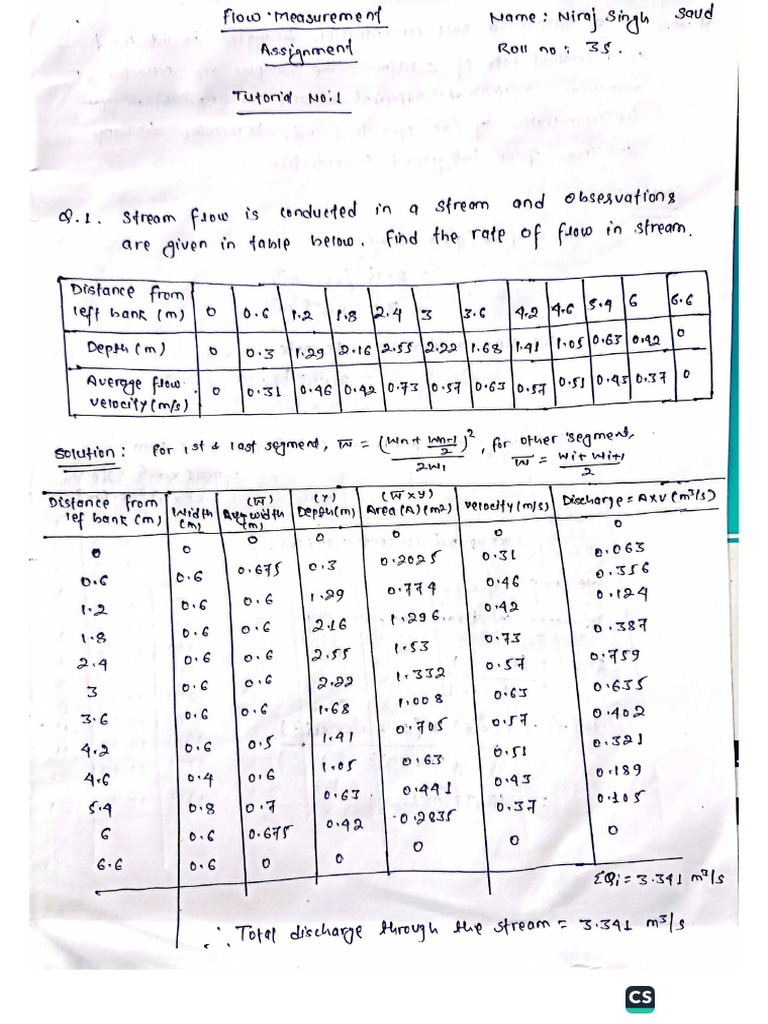 Flow Measurement Name: Niraj Singh Saud
Assignment Roll no: 35.
Tutorial No:1
Q.1. Stream flow is conducted in a stream and observations
are given in table below. Find the rate of flow in stream.
Distance from left bank (m) 0 0.6 1.2 1.8 2.4 3 3.6 4.2 4.6 5.4 6 6.6
Depth (m) 0 0.3 1.29 2.16 2.55 2.22 1.68 1.41 1.05 0.63 0.42 0
Average flow velocity (m/s) 0 0.31 0.46 0.42 0.73 0.57 0.63 0.57 0.51 0.43 0.37 0
Solution: For 1st & last segment, w̅ = (Wn + Wn-1/2)²/2W1, for other segment, w̅ = Wi + Wi+1/2
Distance from lef bank (m) Width (m) (w̅) Avg width (m) (Y) Depth(m) (w̅ x y) Area (A) (m2) velocity (m/s) Discharge = A x V (m³/s)
0 0 0 0 0 0 0
0.6 0.6 0.675 0.3 0.2025 0.31 0.063
1.2 0.6 0.6 1.29 0.774 0.46 0.356
1.8 0.6 0.6 2.16 1.296 0.42 0.124
2.4 0.6 0.6 2.55 1.53 0.73 0.387
3 0.6 0.6 2.22 1.332 0.57 0.759
3.6 0.6 0.6 1.68 1.008 0.63 0.635
4.2 0.6 0.5 1.41 0.705 0.57 0.402
4.6 0.4 0.6 1.05 0.63 0.51 0.321
5.4 0.8 0.7 0.63 0.441 0.43 0.189
6 0.6 0.675 0.42 0.2835 0.37 0.105
6.6 0.6 0 0 0 0 0
ΣQi = 3.341 m³/s
∴ Total discharge through the stream = 3.341 m³/s
CS